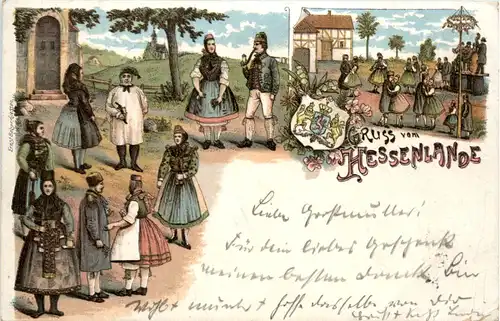 Gruss vom
Hessenlande
Liebe Großmutter!
Für dein liebes Geschenk
meinen besten Dank. Bin
Wohl + munter + hoffe dasselbe von dir
Gruß + Kuß